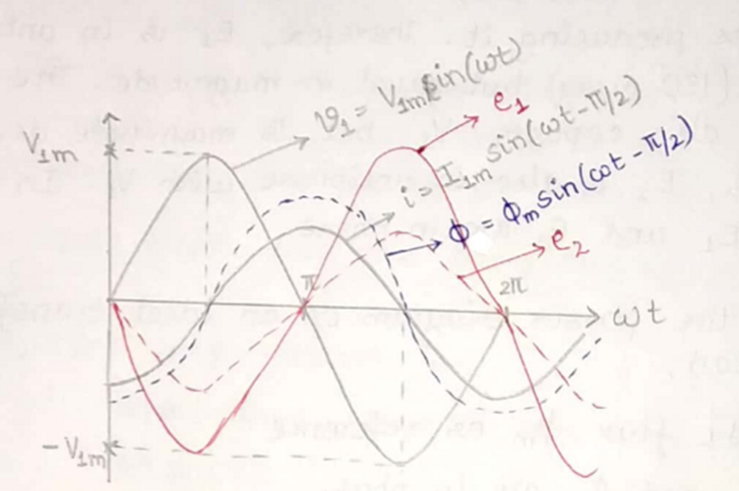 ϑ₁ = V₁ₘ sin(ωt)
e₁
V₁ₘ
i = I₁ₘ sin(ωt-π/2)
ϕ = ϕₘ sin(ωt-π/2)
e₂
π
2π
ωt
-V₁ₘ